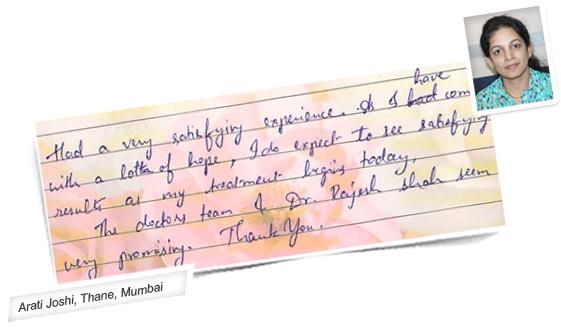 Had a very satisfying experience. As I have had come
with a lotta of hope, I do expect to see satisfying
results as my treatment begins today.
The doctors team & Dr. Rajesh Shah seem
very promising. Thank You.
Arati Joshi, Thane, Mumbai